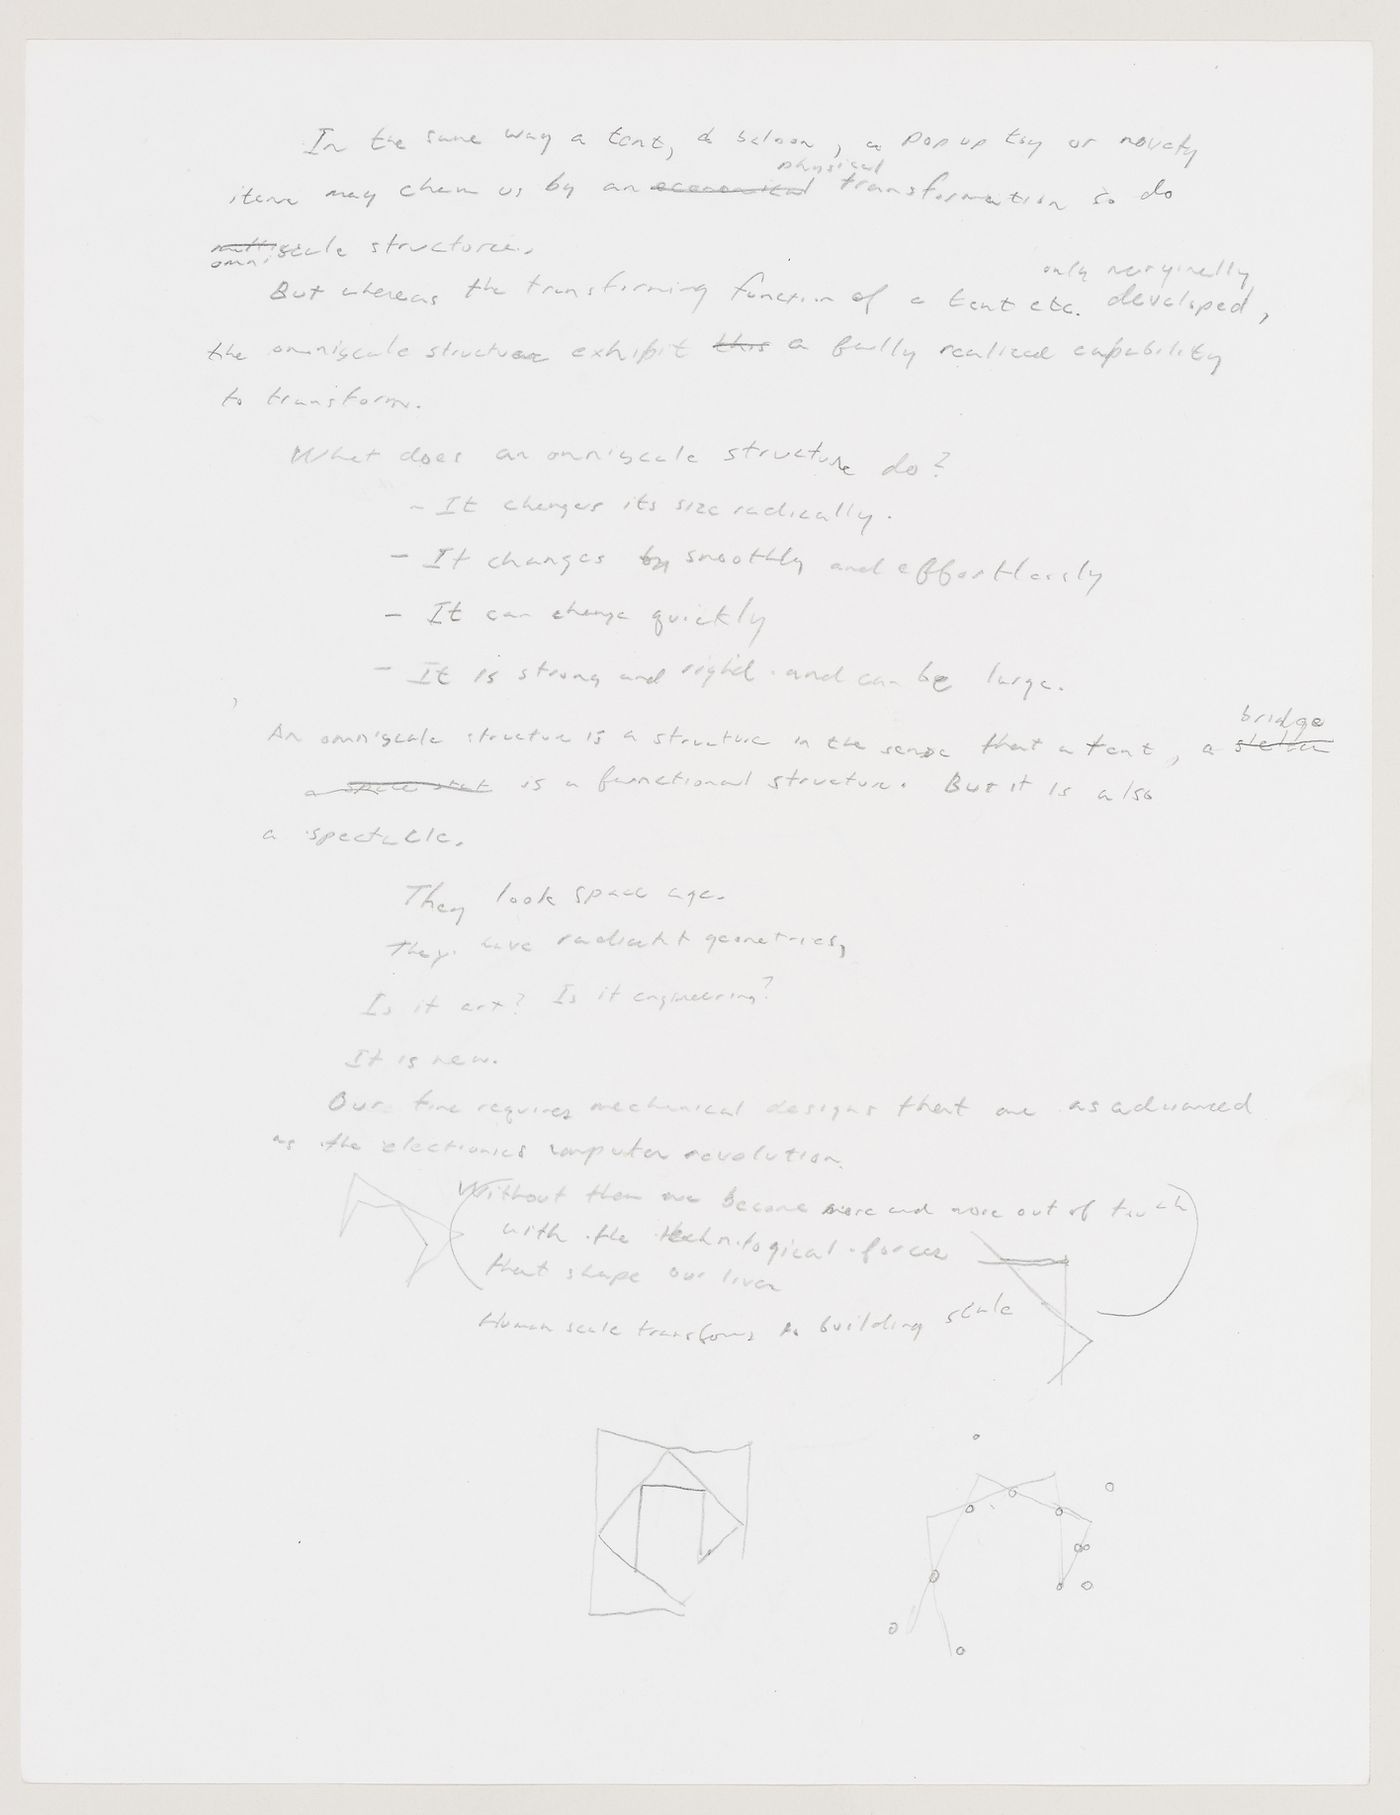 In the same way a tent, a baloon, a pop up toy or novelty
physical
item may charm us by an economical transformation so do
multiscale structures.
omni
only marginally
But whereas the transforming function of a tent etc. developed,
the omniscale structure exhibit this a fully realized capability
to transform.
What does an omniscale structure do?
- It changes its size radically.
- It changes by smoothly and effortlessly
- It can change quickly
- It is strong and rigid. and can be large.
bridge
An omniscale structure is a structure in the sense that a tent, a
is a functional structure. But it is also
a spectacle.
They look space age.
They have radiant geometries,
Is it art? Is it engineering?
It is new.
Our time requires mechanical designs that are as advanced
as the electronics computer revolution.
Without them we become more and more out of touch
with the technological forces
that shape our lives
Human scale transforms to building scale